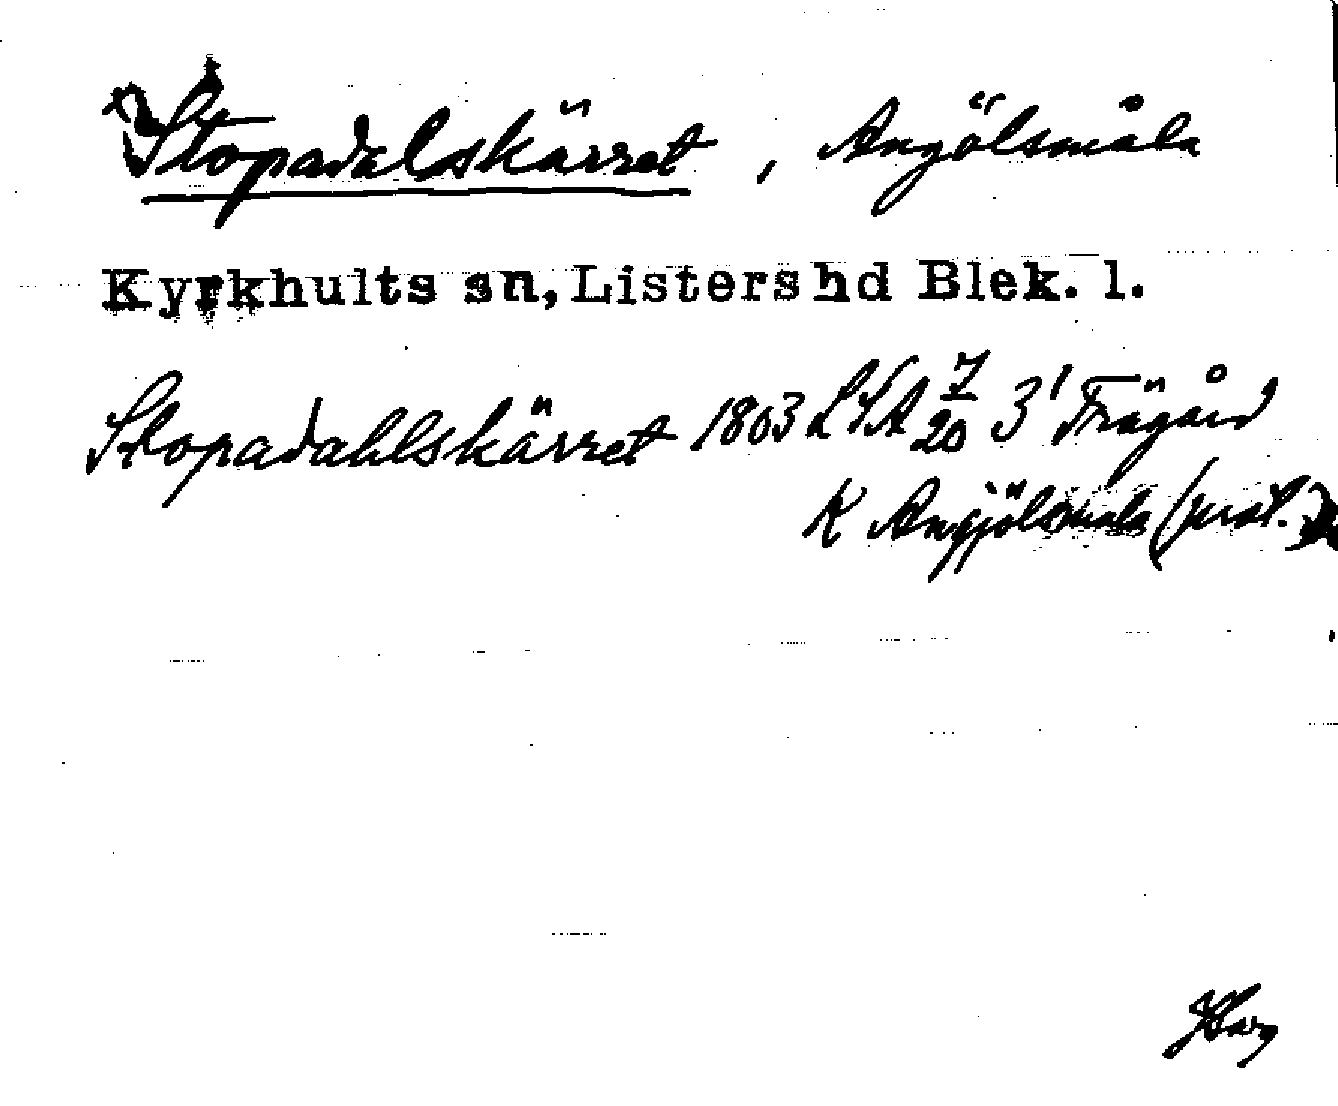 Stopadalskärret, Angölsmåla
Kyrkhults sn, Listers hd Blek. l.
Stopadahlskärret 1803 LSA 7/20 3' Trägård
K Angjölsmåla (prot.)